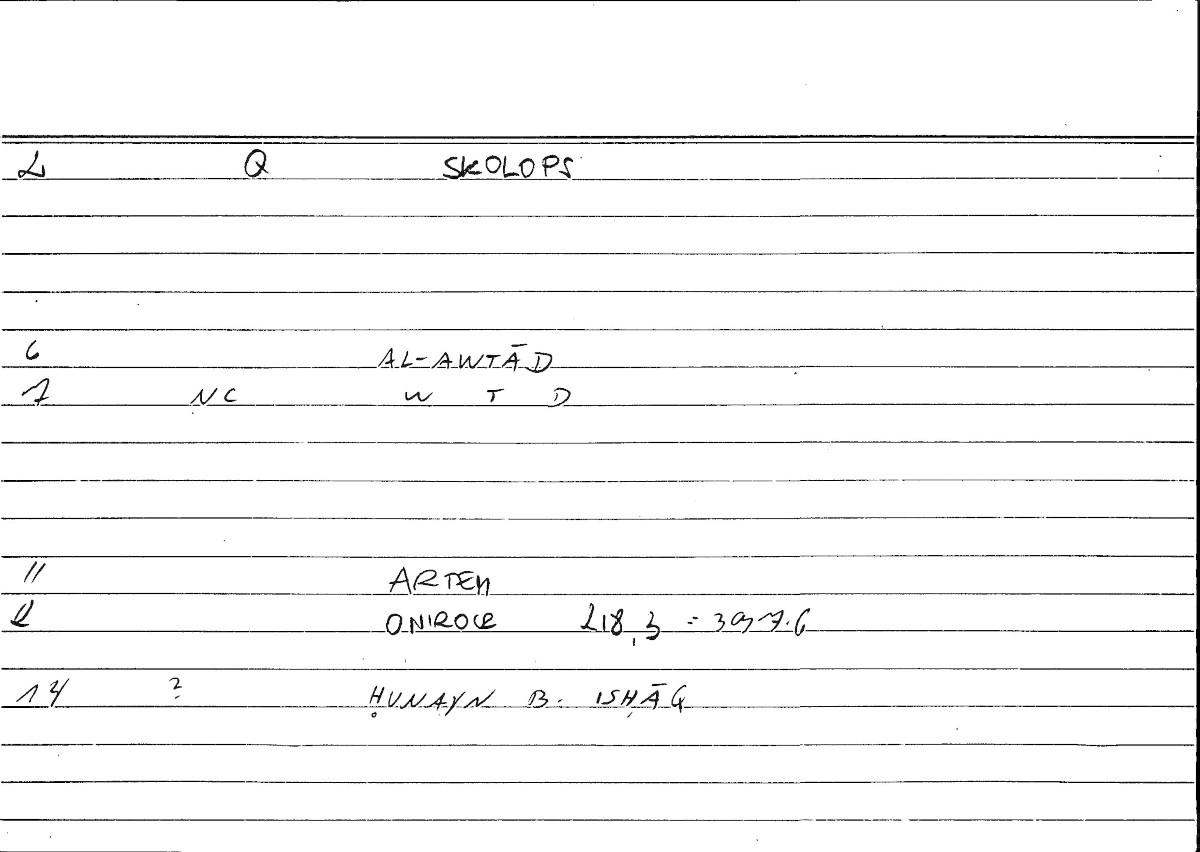 2 Q SKOLOPS
6 AL-AWTĀD
7 NC W T D
11 ARTEM
12 ONIROCR 218,3 = 397.6
14 ? ḤUNAYN B. ISḤĀQ